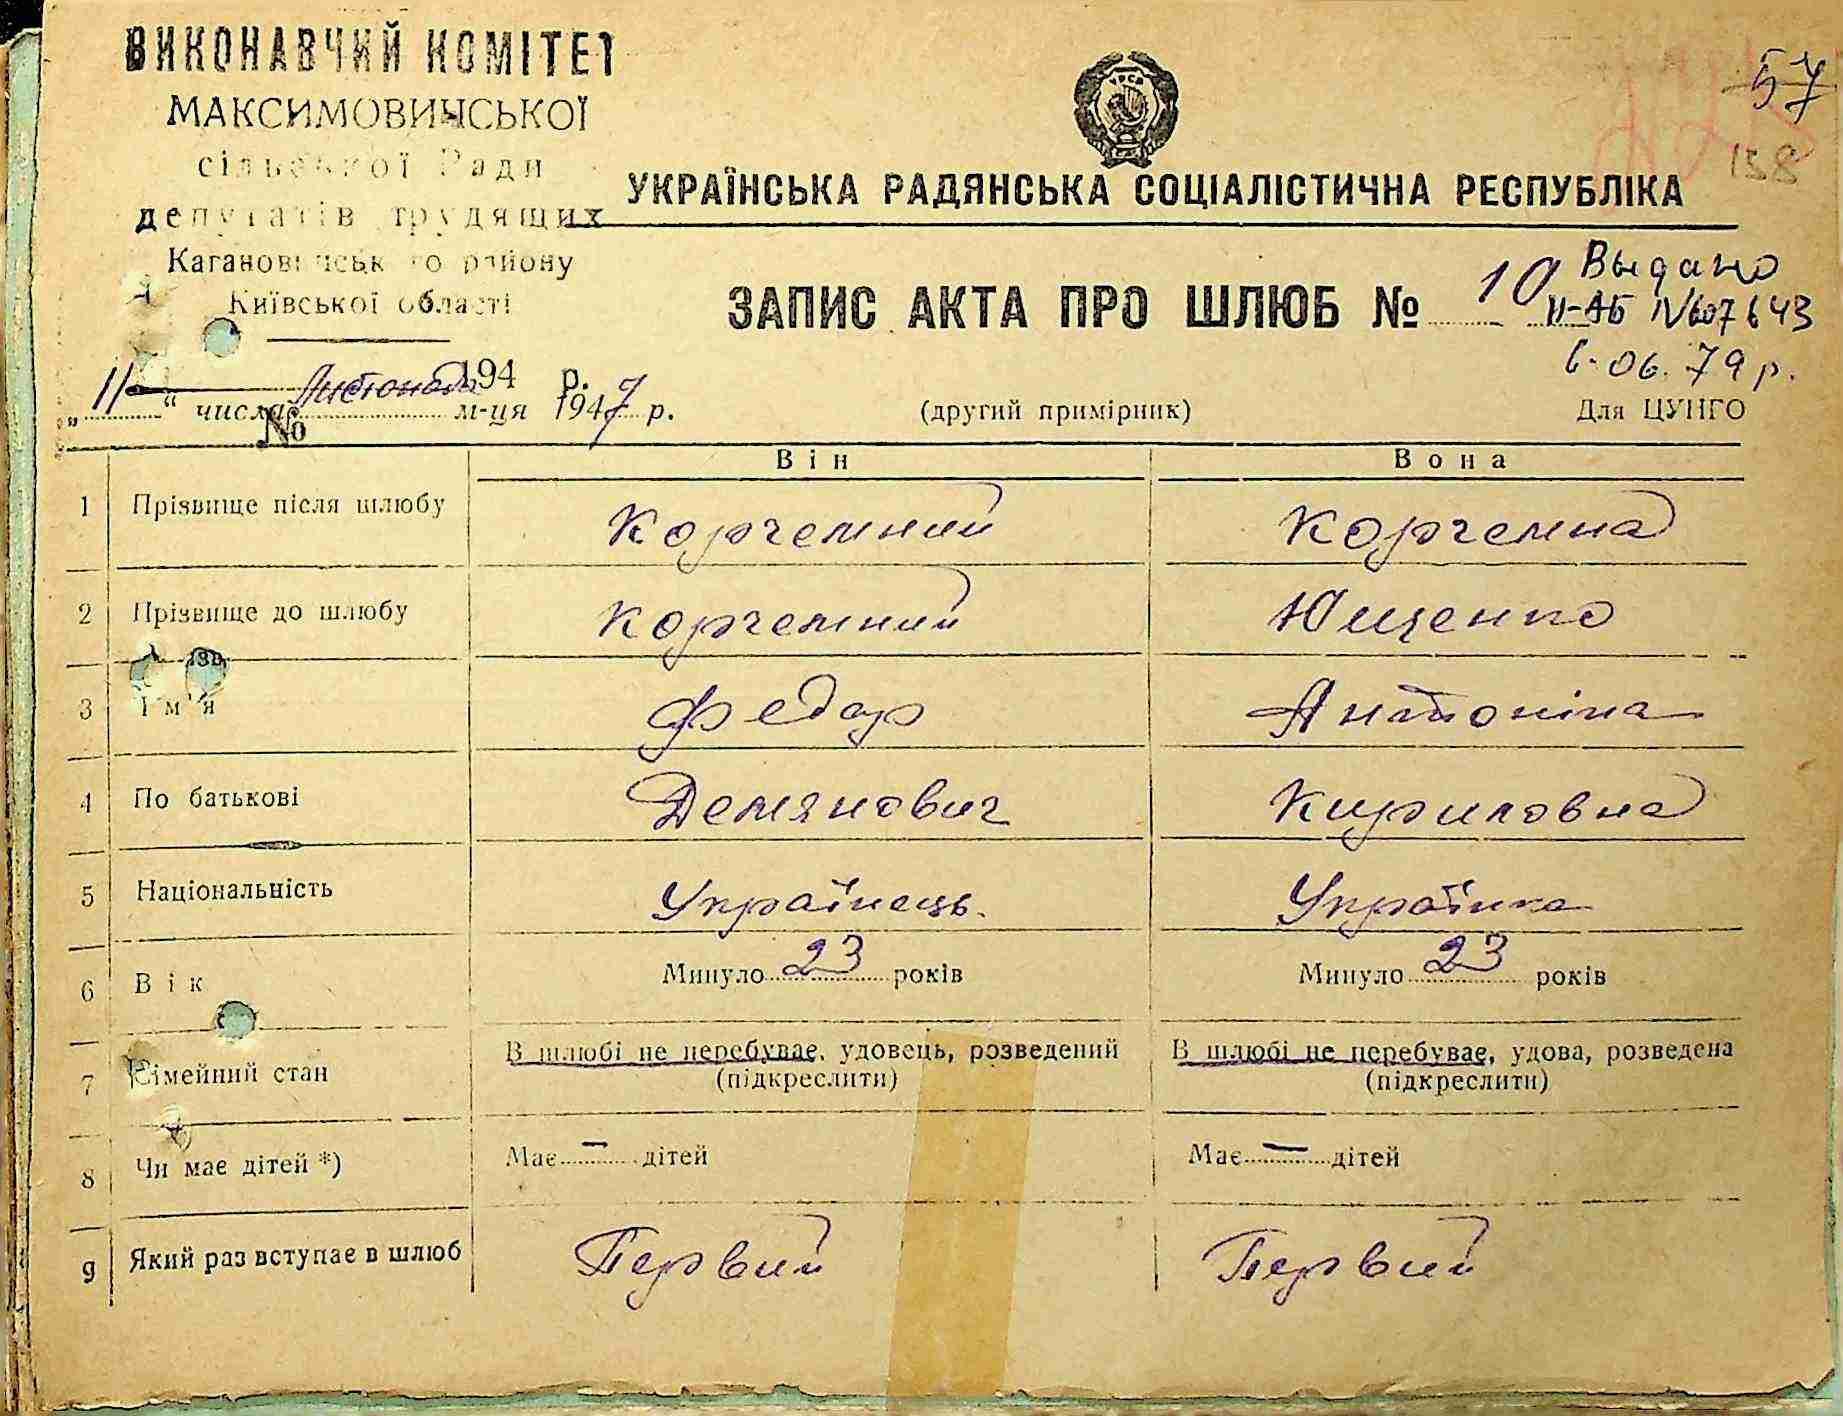 ВИКОНАВЧИЙ КОМІТЕТ
МАКСИМОВИЧСЬКОЇ
сільської Ради
депутатів трудящих
Кагановичського району
Київської області
194 р.
№
57
158
УКРАЇНСЬКА РАДЯНСЬКА СОЦІАЛІСТИЧНА РЕСПУБЛІКА
ЗАПИС АКТА ПРО ШЛЮБ № 10
Выдано
II-АБ №607643
6.06.79 р.
„11“ числа Листопада м-ця 1947 р.
(другий примірник)
Для ЦУНГО
Він Вона
1 Прізвище після шлюбу Корчемний Корчемна
2 Прізвище до шлюбу Корчемний Ющенко
3 Ім'я Федор Антоніна
4 По батькові Демянович Кириловна
5 Національність Українець. Українка
6 Вік Минуло 23 років Минуло 23 років
7 Сімейний стан В шлюбі не перебуває, удовець, розведений В шлюбі не перебуває, удова, розведена
(підкреслити) (підкреслити)
8 Чи має дітей *) Має — дітей Має — дітей
9 Який раз вступає в шлюб Первий Первий